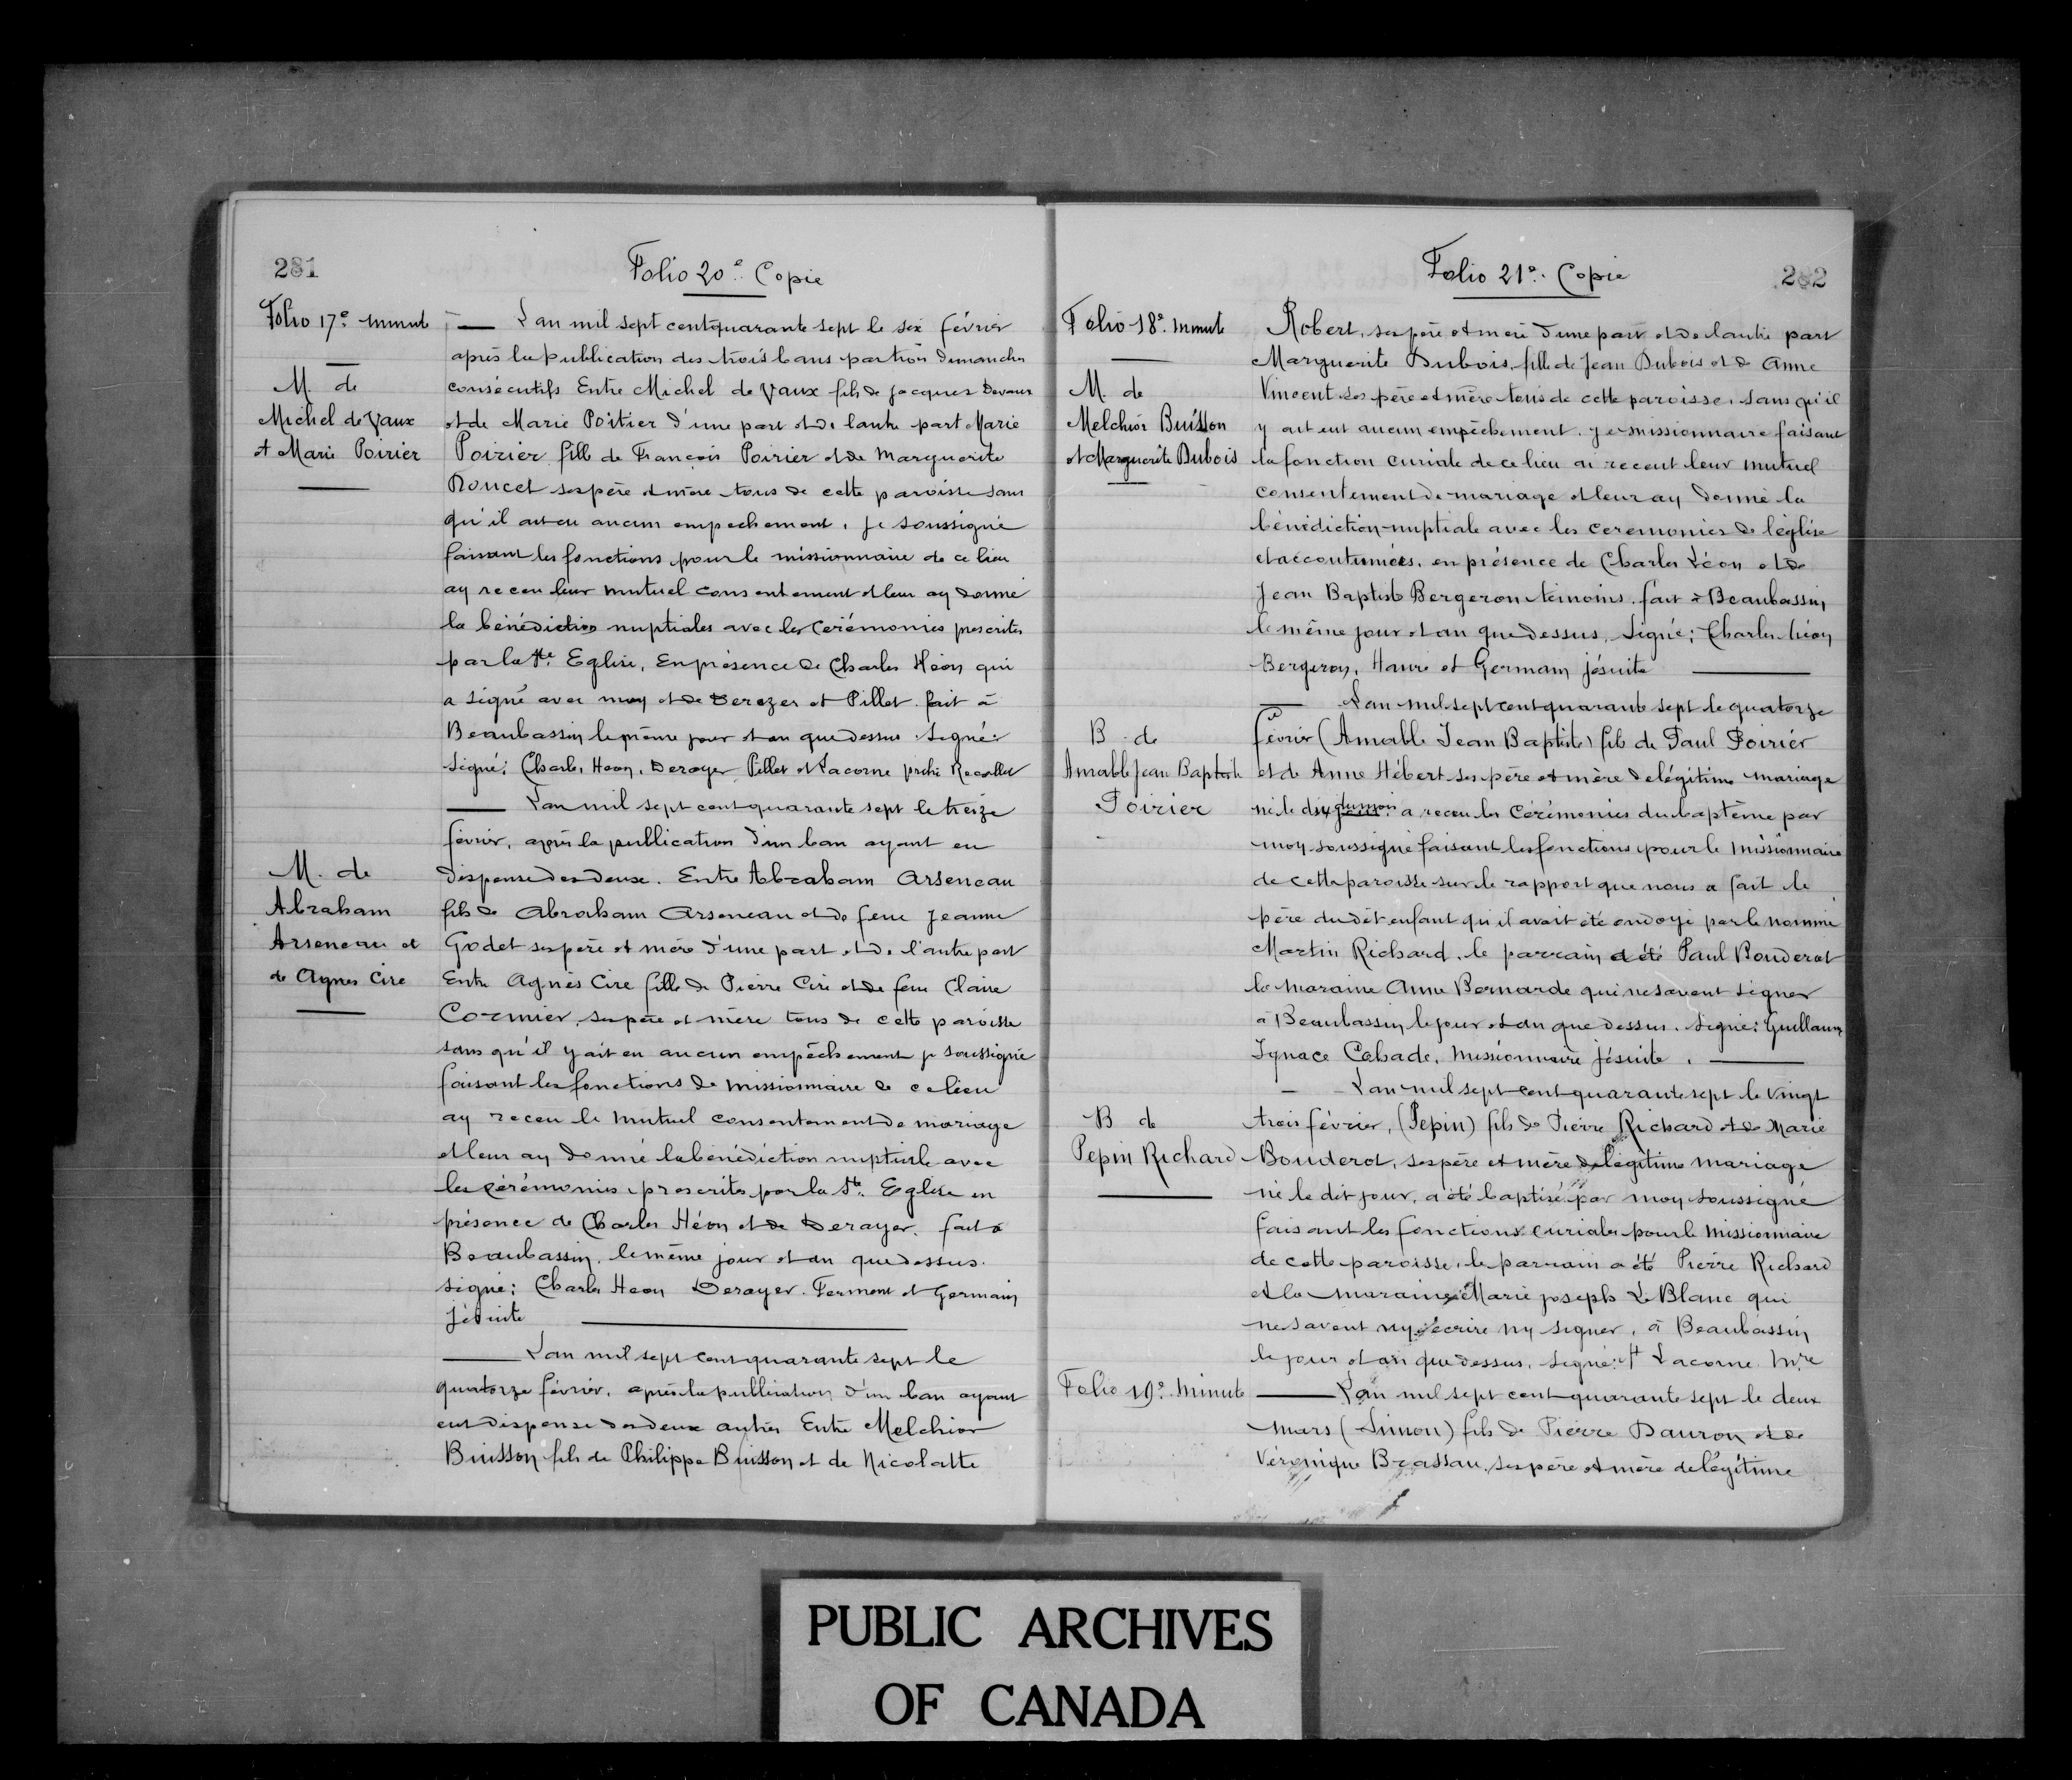 281
Folio 20e Copie
Folio 17e minut
M. de
Michel de Vaux
et Marie Poirier
L'an mil sept cent quarante sept le six février
après la publication des trois bans par trois dimanches
consécutifs Entre Michel de Vaux fils de Jacques Devaux
et de Marie Poitier d'une part et de lautre part Marie
Poirier fille de François Poirier et de Marguerite
Doucet ses père et mère tous de cette paroisse sans
qu'il ait eu aucun empechement, je soussigné
faisant les fonctions pour le missionnaire de ce lieu
ay receu leur mutuel consentement et leur ay donné
la bénédiction nuptiales avec les cérémonies prescrites
par la Ste. Eglise, En présence de Charles Héon qui
a signé avec moy et de Derezer et Pillet. fait à
Beaubassin le même jour et an que dessus. Signé:
Signé: Charles Heon, Derayer Pellet et Lacorne prêtre Recollet
L'an mil sept cent quarante sept le treize
février, après la publication d'un ban ayant eu
dispense des deux. Entre Abraham Arseneau
fils de Abraham Arseneau et de feue Jeanne
Godet ses père et mère d'une part et de l'autre part
Entre Agnès Cire fille de Pierre Cire et de feue Claire
Cormier, ses père et mère tous de cette paroisse
sans qu'il y ait eu aucun empêchement je soussigné
faisant les fonctions de missionnaire de ce lieu
ay receu le mutuel consentement de mariage
et leur ay donné la bénédiction nuptiale avec
les cérémonies prescrites par la Ste. Eglise en
présence de Charles Héon et de Derayer. fait à
Beaubassin. le même jour et an que dessus.
signé: Charles Heon Derayer. Fermont et Germain
jésuite
M. de
Abraham
Arseneau et
de Agnes Cire
L'an mil sept cent quarante sept le
quatorze février, après la publication d'un ban ayant
eut dispense des deux autres Entre Melchior
Buisson fils de Philippe Buisson et de Nicolatte
282
Folio 21e. Copie
Folio 18e. minute
M. de
Melchior Buisson
et Marguerite Dubois
Robert, ses père et mère d'une part et de lautre part
Marguerite Dubois, fille de Jean Dubois et de Anne
Vincent ses père et mère tous de cette paroisse. sans qu'il
y ait eut aucun empêchement. je missionnaire faisant
la fonction curiale de ce lieu ai receut leur mutuel
consentement de mariage et leur ay donné la
bénédiction nuptiale avec les ceremonies de l'église
et accoutumées, en présence de Charles Léon et de
Jean Baptiste Bergeron témoins. fait à Beaubassin
le même jour et an que dessus. Signé: Charles héon
Bergeron, Haure et Germain jésuite
L'an mil sept cent quarante sept le quatorze
février (Amable Jean Baptiste) fils de Paul Poirier
et de Anne Hébert ses père et mère de légitime mariage
né le dix du mois a receu les cérémonies du baptême par
moy soussigné faisant les fonctions pour le missionnaire
de cette paroisse sur le rapport que nous a fait le
père du dit enfant qu'il avait été ondoyé par le nommé
Martin Richard. le parrain a été Paul Bouderot
la maraine Anne Bernarde qui ne savent signer
à Beaubassin le jour et an que dessus. signé: Guillaume
Ignace Cabade, missionnaire jésuite.
B. de
Amable Jean Baptiste
Poirier
L'an mil sept cent quarante sept le vingt
trois février, (Pepin) fils de Pierre Richard et de Marie
Bouderot, ses père et mère de légitime mariage
né le dit jour, a été baptisé par moy soussigné
faisant les fonctions curiales pour le missionnaire
de cette paroisse, le parrain a été Pierre Richard
et la maraine Marie joseph Le Blanc qui
ne savent ny écrire ny signer, à Beaubassin
le jour et an que dessus. signé: Lacorne Mre
B de
Pepin Richard
Folio 19e. minute
L'an mil sept cent quarante sept le deux
mars (Simon) fils de Pierre Dauron et de
Véronique Brassau, ses père et mère de légitime
PUBLIC ARCHIVES
OF CANADA